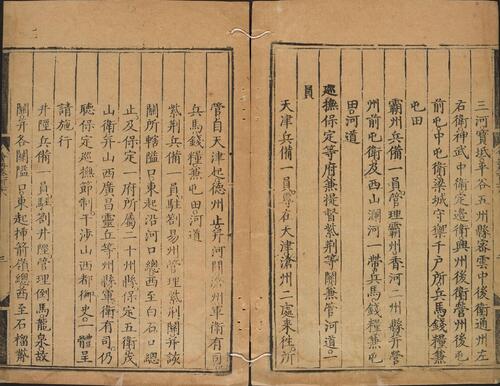 三河寶坻平谷五州縣密雲中後衛通州左
右衛神武中衛定邊衛興州後衛營州後屯
前屯中屯衛梁城守禦千戶所兵馬錢糧兼
屯田
霸州兵備一員管理霸州香河二州縣并營
州前屯衛及西山瀾河一帶兵馬錢糧兼屯
田河道
巡撫保定等府兼提督紫荆等關兼管河道一
員
天津兵備一員專在天津滄州二處來往所
管自天津起德州止并河間滄州軍衛有司
兵馬錢糧兼屯田河道
紫荆兵備一員駐劄易州管理紫荆關并該
關所轄隘口東起沿河口總西至白石口總
止及保定一府所屬二十州縣保定五衛茂
山衛并山西廣昌靈丘等州縣軍衛有司仍
聽保定巡撫節制干涉山西都御史一體呈
請施行
井陘兵備一員駐劄井陘管理倒馬龍泉故
關并各關隘口東起揷箭嶺總西至石榴散